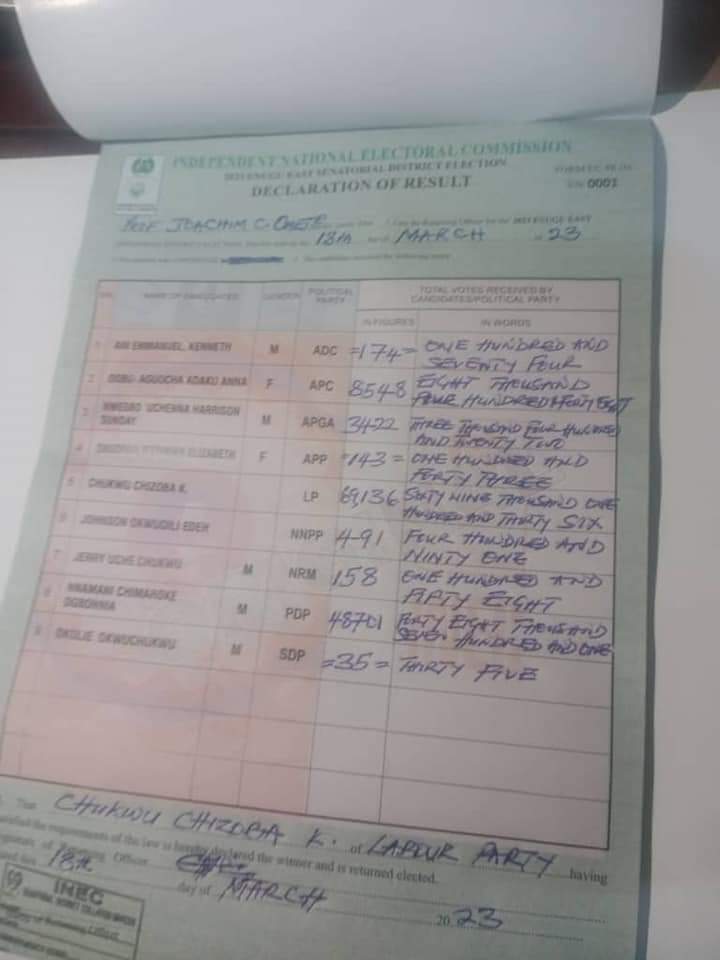 INDEPENDENT NATIONAL ELECTORAL COMMISSION
2023 ENUGU EAST SENATORIAL DISTRICT ELECTION
DECLARATION OF RESULT
S/N 0001
PROF JOACHIM C. I am the Returning Officer for the 2023 ENUGU EAST
18th day of MARCH 2023
NAME OF CANDIDATES GENDER POLITICAL PARTY TOTAL VOTES RECEIVED BY CANDIDATES/POLITICAL PARTY
IN FIGURES IN WORDS
1 ANI EMMANUEL, KENNETH M ADC =174= ONE HUNDRED AND SEVENTY FOUR
2 OGBU AGUOCHA ADAKU ANNA F APC 8548 EIGHT THOUSAND FOUR HUNDRED & FORTY EIGHT
3 NWEGBO UCHENNA HARRISON SUNDAY M APGA 3422 THREE THOUSAND FOUR HUNDRED AND TWENTY TWO
4 ELIZABETH F APP 143= ONE HUNDRED AND FORTY THREE
5 CHUKWU CHIZOBA K. LP 69,136 SIXTY NINE THOUSAND ONE HUNDRED AND THIRTY SIX
6 JOHNSON OKWUDILI EDEH NNPP 491 FOUR HUNDRED AND NINTY ONE
7 JERRY UCHE CHUKWU M NRM 158 ONE HUNDRED AND FIFTY EIGHT
8 NNAMANI CHIMAROKE OGBONNIA M PDP 48701 FORTY EIGHT THOUSAND SEVEN HUNDRED AND ONE
9 OKOLIE OKWUCHUKWU M SDP =35= THIRTY FIVE
That CHUKWU CHIZOBA K. of LABOUR PARTY having
satisfied the requirements of the law is hereby declared the winner and is returned elected.
Officer
18th day of MARCH 2023
INEC